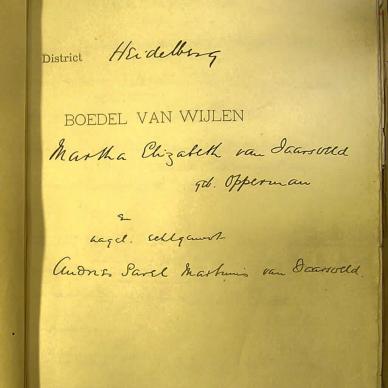 District Heidelberg
BOEDEL VAN WIJLEN
Martha Elizabeth van Jaarsveld
geb. Opperman
&
nagel. echtgenoot
Andries Sarel Marthinus van Jaarsveld.